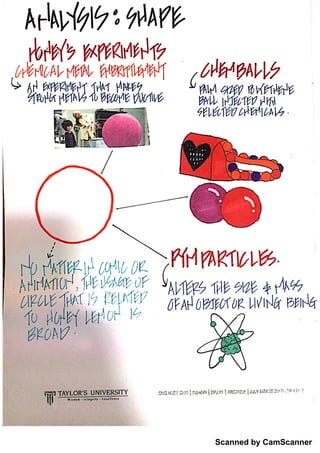 ANALYSIS: SHAPE
HONEY'S EXPERIMENTS
CHEMICAL METAL EMBRITTLEMENT
AN EXPERIMENT THAT MAKES
STRONG METALS TO BECOME DUCTILE
CHEMBALLS
PALM SIZED POLYETHENE
BALL INJECTED WITH
SELECTED CHEMICALS.
NO MATTER IN COMIC OR
ANIMATION, THE USAGE OF
CIRCLE THAT IS RELATED
TO HONEY LEMON IS
BROAD.
PYM PARTICLES.
ALTERS THE SIZE & MASS
OF AN OBJECT OR LIVING BEING
TAYLOR'S UNIVERSITY
Wisdom • Integrity • Excellence
Scanned by CamScanner